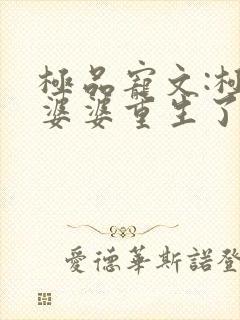 極品寵文:極
婆婆重生了
愛德華斯諾登